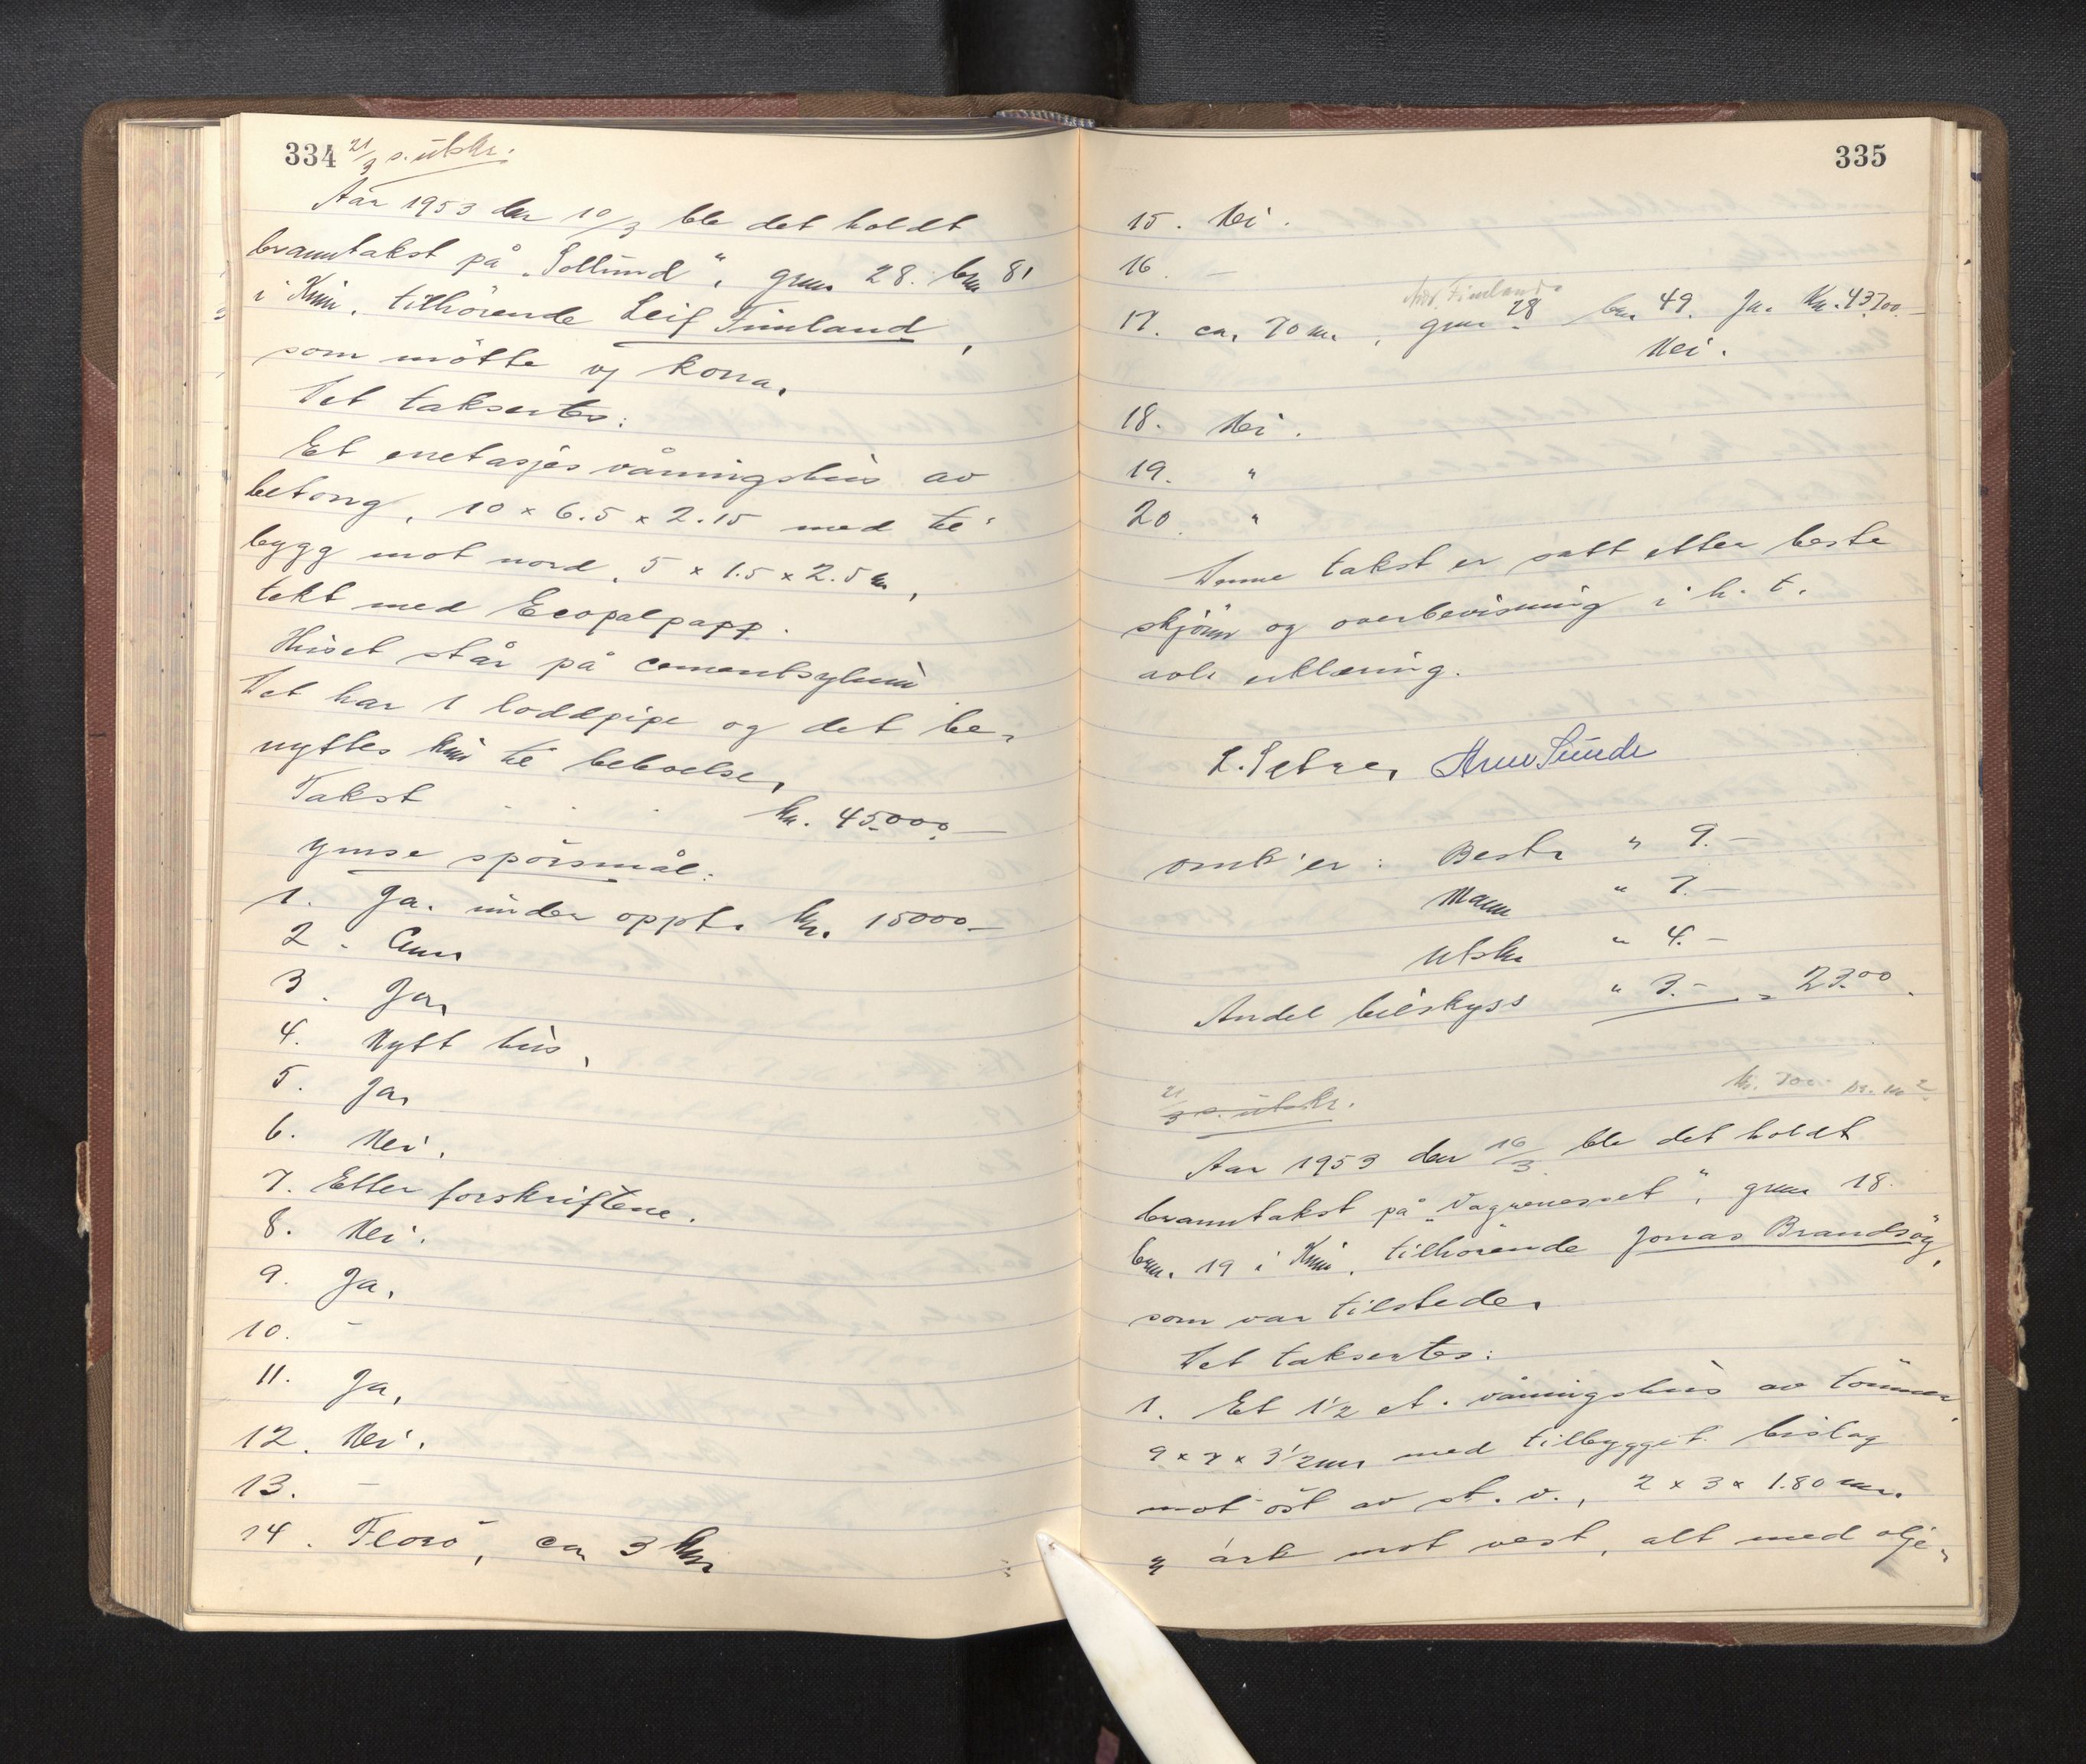 334 21/3 s. utskr.
Aar 1953 den 10/3 ble det holdt
branntakst på „Sollund“, gnr. 28. bnr 81
i Kinn, tilhörende Leif Fimland,
som mötte v/ kona.
Det taksertes:
Et enetasjes våningshus av
betong, 10 x 6.5 x 2.15 med til
bygg mot nord, 5 x 1.5 x 2.5 m,
tekt med Ecopalpapp.
Huset står på cementsylmur
Det har 1 loddpipe og det be-
nyttes kun til beboelse,
Takst . . . kr. 45.000.—
Ymse spörsmål:
1. Ja. under oppf. kr. 15000.—
2.
3. Ja,
4. Nytt hus,
5. Ja,
6. Nei.
7. Etter forskriftene.
8. Nei.
9. Ja,
10. –
11. Ja,
12. Nei.
13. –
14. Florö, ca 3 km
335
15. Nei.
16. –
Fimland
17. ca. 70 m., gnr 28 bnr 49. Ja. Kr. 43700.—
Nei.
18. Nei.
19. "
20. "
Denne takst er satt etter beste
skjönn og overbevisning i h. t.
avl. erklæring.
L. Sætre, Arne Sunde
omk'er: Bestr " 9.–
Mann " 7.–
Utskr " 4.–
Andel bilskyss " 3.– = 23.00.
kr. 700.- pr. m²
21/3 s. utskr.
Aar 1953 den 16/3 ble det holdt
branntakst på „Vagreneset“, gnr 18.
bnr. 19 i Kinn, tilhörende Jonas Brandsöy,
som var tilstede,
Det taksertes:
1. Et 1½ et. våningshus av tömmer,
9 x 7 x 3½ m, med tilbygget bislag
mot öst av st. v., 2 x 3 x 1.80 m.
" ark mot vest, alt med olje-